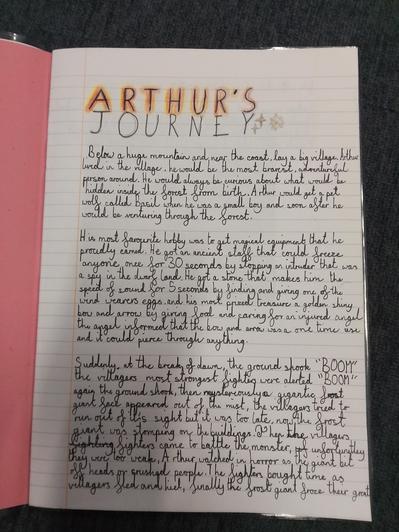 ARTHUR'S
JOURNEY
Below a huge mountain and near the coast, lay a big village. Arthur
lived in the village. he would be the most bravest, adventureful
person around. He would always be curious about what would be
hidden inside the forest from birth. Arthur would get a pet
wolf called Basil when he was a small boy and soon after he
would be venturing through the forest.
His most favourite hobby was to get magical equipment that he
proudly earned. He got an ancient staff that could freeze
anyone once for 30 seconds by stopping an intruder that was
a spy in the dwarf land. He got a stone that makes him the
speed of sound for 5 seconds by finding and giving one of the
wind wearers eggs. and his most prized treasure a golden shiny
bow and arrow by giving food and caring for an injured angel
the angel informed that the bow and arrow was a one time use
and it could pierce through anything.
Suddenly, at the break of dawn, the ground shook "BOOM"
the villagers most strongest fighters were alerted "BOOM"
again the ground shook, then mysteriously a gigantic frost
giant face appeared out of the mist, the villagers tried to
run out of its sight but it was too late, now the frost
giant was stomping on the buildings. Then the villagers
fighting fighters came to battle the monster, but unfortunately
they were too weak, Arthur watched in horror as the giant bit
off heads or crushed people. The fighters bought time as
villagers fled and hid, finally the frost giant froze their great